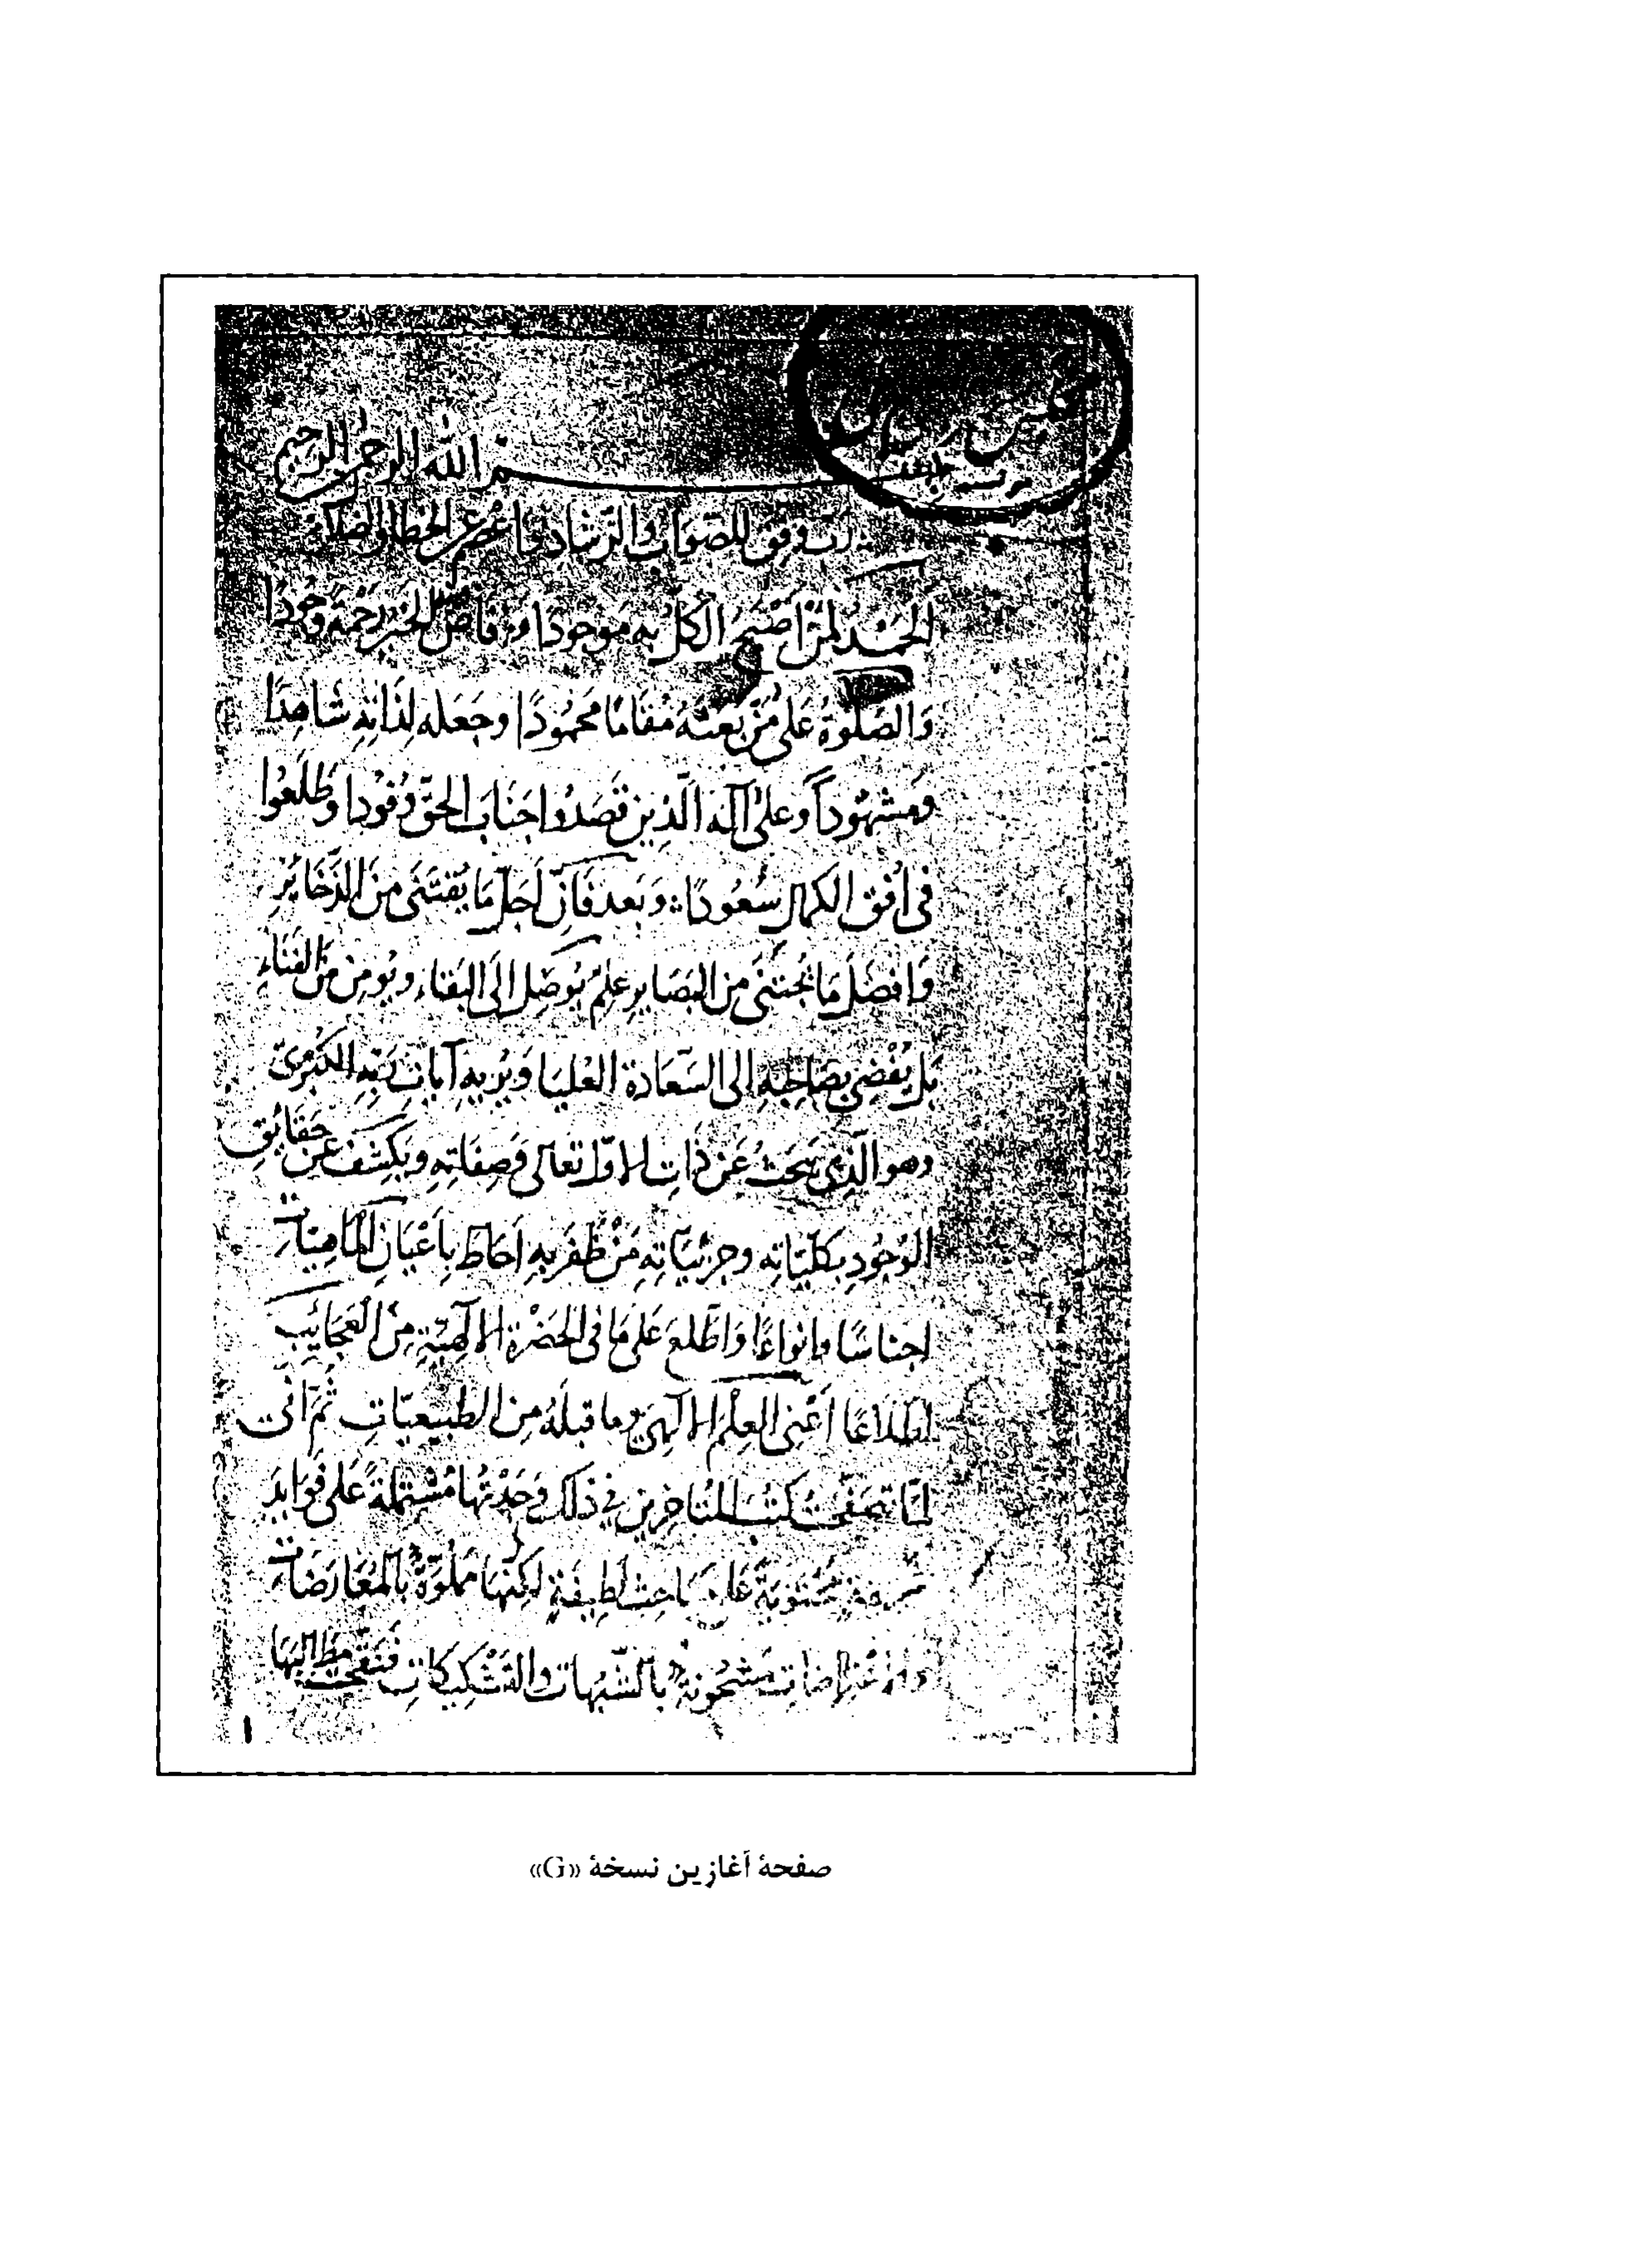 مجلس شورای ملی
بسم الله الرحمن الرحيم
رب وفق للصواب والرشاد واعصم عن الخطا
الحَمْدُ لِمَنْ اَصْبَحَ الكُلُّ بِهِ مَوْجودًا وَ فَاضَ الخير رَحْمَةً وَجُودًا
وَالصَّلوٰةُ عَلى مَنْ بَعَثَهُ مَقَامًا مَحْمُودًا وجَعَله لِذَاتِهِ شَاهِدًا
ومَشهُودًا وعَلى آلِهِ الَّذِين قَصَدُوا جَنَابَ الحَقّ وُفُودا وَطَلَعُوا
فى اُفق الكمال سُعُودًا وَبَعد فَاِنّ اَجَل مَا يُقْتَنَى مِنَ الذَّخَايِرِ
وَافضَل مَا يُجتنَى مِنَ البَصَايِرِ عِلمٌ يُوصِل اِلَى البَقاء ويُومِن مِنَ الفَنَاءِ
بَل يُفْضِى بِصَاحِبِهِ الى السَّعَادَة العُليَا وَيُريهِ آيَاتِ رَبِّهِ الكُبْرىٰ
وهو الَّذِى يَبحَثُ عَنْ ذَاتِ الاوّل تعَالى وَصِفَاتِهِ وَيَكشِفُ عَنْ حَقَايِقِ
الوُجُودِ بِكُلّيّاتِهِ وجُزئيّاتِهِ مَنْ ظَفَر بِهِ اَحَاطَ بِاَعْيَانِ المَاهِيّاتِ
اجناسًا وانواعًا وَاطّلعَ عَلى مَا فى الحَضْرَة الالهيّةِ مِنَ العَجَايِبِ
اطّلاعًا اَعْنِى العِلْمَ الالهِىَّ وما قبلَهُ مِنَ الطبيعيّاتِ ثُمّ انّى
لمّا تصَفّحتُ كتُبَ المتاخرين فى ذلك وَجَدْتُها مُشْتمِلةً عَلى فَوَايِدَ
شريفةٍ محتويةً على مباحثَ لطِيفةٍ لكِنّها مَملُوّةٌ بالمُعَارَضَاتِ
والاعتراضاتِ مَشحُونةٌ بالشّبهات والتشكيكاتِ فنقّحتُ مطالِبَها
١
صفحهٔ آغازین نسخهٔ «G»